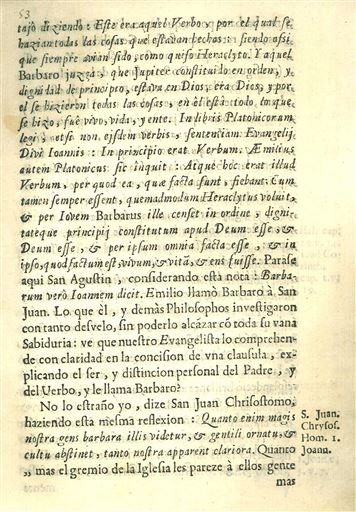 53
tajò diziendo: Este era aquel Verbo, por el qual se
hazian todas las cosas que estavan hechas: siendo assi,
que siempre avian sido, como quiso Heraclyto. Y aquel
Barbaro juzga, que Jupiter constituido en orden, y
dignidad de principio, estava en Dios, era Dios, y por
el se hizieron todas las cosas, en èl està todo, lo que
se hizo, fue vivo, vida, y ente. In libris Platonicorum
legi, etsi non ijsdem verbis, sententiam Evangelij
Divi Ioannis: In principio erat Verbum. Æmilius
autem Platonicus sic inquit: Atque hoc erat illud
Verbum, per quod ea, quæ facta sunt, fiebant: Cum
tamen semper essent, quemadmodum Heraclytus voluit,
& per Iovem Barbarus ille censet in ordine, digni-
tateque principij constitutum apud Deum esse, &
Deum esse, & per ipsum omnia facta esse, & in
ipso, quod factum est, vivum, & vitã, & ens fuisse. Parase
aqui San Agustin, considerando esta nota: Barba-
rum verò Ioannem dicit. Emilio llamò Barbaro à San
Juan. Lo que èl, y demàs Philosophos investigaron
con tanto desvelo, sin poderlo alcãzar cõ toda su vana
Sabiduria: ve que nuestro Evangelista lo comprehen-
de con claridad en la concision de vna clausula, ex-
plicando el ser, y distincion personal del Padre, y
del Verbo, y le llama Barbaro?
No lo estraño yo, dize San Juan Chrisostomo,
haziendo esta mesma reflexion: Quanto enim magis
nostra gens barbara illis videtur, & gentili ornatu, &
cultu abstinet, tanto nostra apparent clariora. Quanto
„ mas el gremio de la Iglesia les pareze à ellos gente
mas
S. Juan.
Chrysos.
Hom. 1.
Joanu.